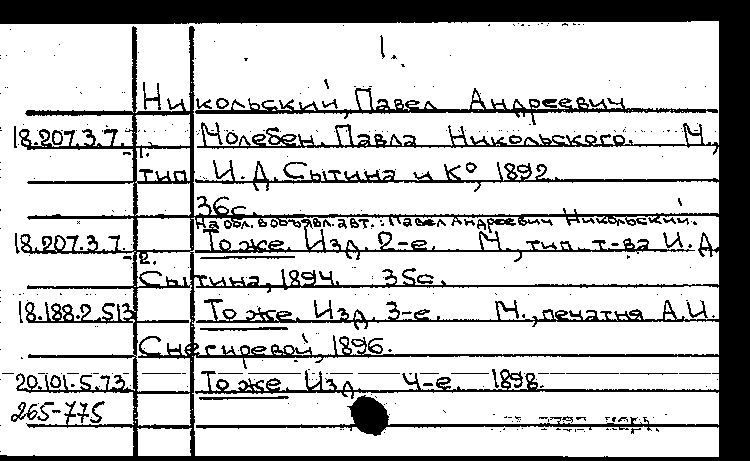 1.
Никольский, Павел Андреевич
18.207.3.7. Молебен. Павла Никольского. М.,
-1. тип. И.Д. Сытина и К°, 1892.
36с.
На обл. в объявл. авт.: Павел Андреевич Никольский.
18.207.3.7. То же. Изд. 2-е. М., тип. т-ва И.Д.
-2. Сытина, 1894. 35с.
18.188.2.513 То же. Изд. 3-е. М., печатня А.И.
Снегиревой, 1896.
20.101.5.73. То же. Изд. 4-е. 1898.
265-775